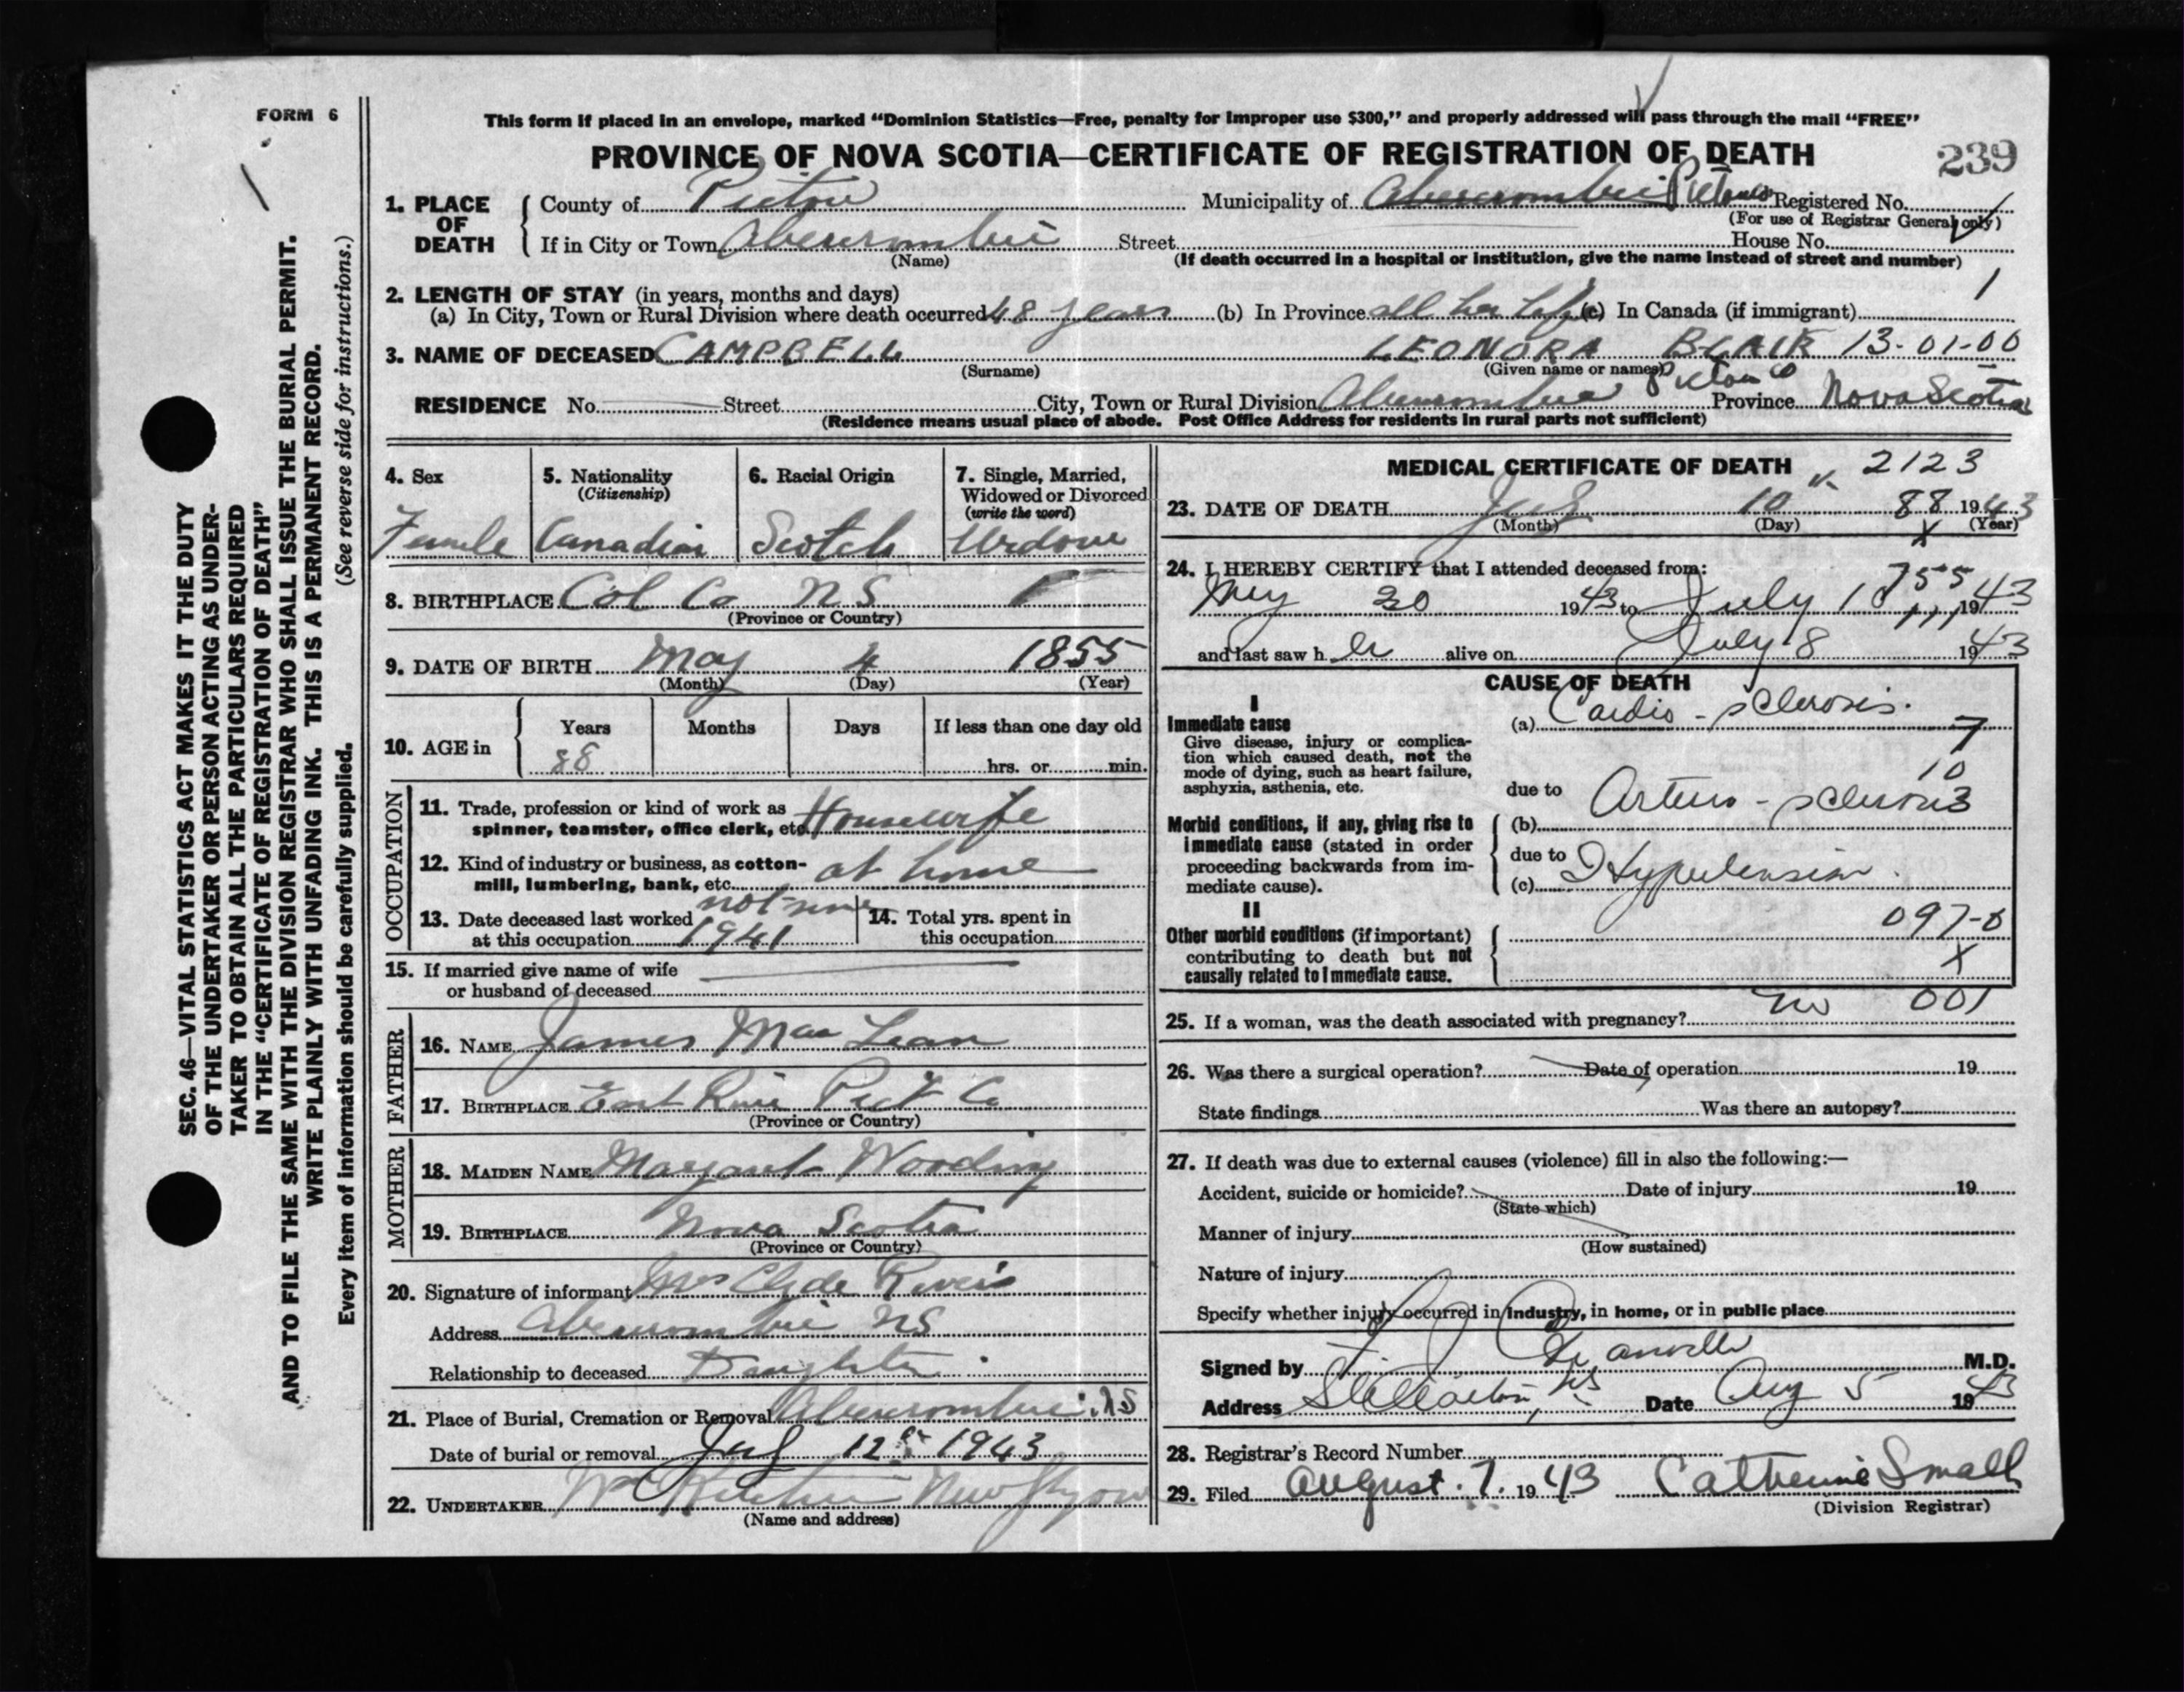 FORM 6
This form if placed in an envelope, marked “Dominion Statistics—Free, penalty for improper use $300,” and properly addressed will pass through the mail “FREE”
PROVINCE OF NOVA SCOTIA—CERTIFICATE OF REGISTRATION OF DEATH
239
1. PLACE OF DEATH
County of Pictou Municipality of Abercrombie Pictou Registered No.
(For use of Registrar General only)
If in City or Town Abercrombie Street House No.
(Name)
(If death occurred in a hospital or institution, give the name instead of street and number)
1
2. LENGTH OF STAY (in years, months and days)
(a) In City, Town or Rural Division where death occurred 48 years (b) In Province all her life (c) In Canada (if immigrant)
3. NAME OF DECEASED CAMPBELL LEONORA BLAIR 13-01-00
(Surname) (Given name or names)
RESIDENCE No. Street City, Town or Rural Division Abercrombie Pictou Co Province Nova Scotia
(Residence means usual place of abode. Post Office Address for residents in rural parts not sufficient)
SEC. 46—VITAL STATISTICS ACT MAKES IT THE DUTY
OF THE UNDERTAKER OR PERSON ACTING AS UNDER-
TAKER TO OBTAIN ALL THE PARTICULARS REQUIRED
IN THE “CERTIFICATE OF REGISTRATION OF DEATH”
AND TO FILE THE SAME WITH THE DIVISION REGISTRAR WHO SHALL ISSUE THE BURIAL PERMIT.
WRITE PLAINLY WITH UNFADING INK. THIS IS A PERMANENT RECORD.
Every item of information should be carefully supplied. (See reverse side for instructions.)
4. Sex
Female
5. Nationality
(Citizenship)
Canadian
6. Racial Origin
Scotch
7. Single, Married,
Widowed or Divorced
(write the word)
Widow
8. BIRTHPLACE Col Co NS
(Province or Country)
9. DATE OF BIRTH May 4 1855
(Month) (Day) (Year)
10. AGE in
Years Months Days If less than one day old
88 hrs. or min.
OCCUPATION
11. Trade, profession or kind of work as
spinner, teamster, office clerk, etc. Housewife
12. Kind of industry or business, as cotton-
mill, lumbering, bank, etc. at home
13. Date deceased last worked not since
at this occupation 1941
14. Total yrs. spent in
this occupation
15. If married give name of wife
or husband of deceased
FATHER
16. NAME James MacLean
17. BIRTHPLACE East River Pict Co
(Province or Country)
MOTHER
18. MAIDEN NAME Margaret Wooding
19. BIRTHPLACE Nova Scotia
(Province or Country)
20. Signature of informant Mrs Clyde
Address Abercrombie NS
Relationship to deceased Daughter
21. Place of Burial, Cremation or Removal Abercrombie NS
Date of burial or removal July 12 1943
22. UNDERTAKER New
(Name and address)
MEDICAL CERTIFICATE OF DEATH 2123
23. DATE OF DEATH July 10 88 1943
(Month) (Day) (Year)
X
24. I HEREBY CERTIFY that I attended deceased from:
755
May 30 1943 to July 10 1943
and last saw h er alive on July 8 1943
CAUSE OF DEATH
I
Immediate cause
Give disease, injury or complica-
tion which caused death, not the
mode of dying, such as heart failure,
asphyxia, asthenia, etc.
(a) Cardio-sclerosis.
7
10
3
due to
(b) Arterio-sclerosis
Morbid conditions, if any, giving rise to
immediate cause (stated in order
proceeding backwards from im-
mediate cause).
due to
(c) Hypertension.
II
Other morbid conditions (if important)
contributing to death but not
causally related to immediate cause.
097-0
X
25. If a woman, was the death associated with pregnancy? no 001
26. Was there a surgical operation? Date of operation 19
State findings Was there an autopsy?
27. If death was due to external causes (violence) fill in also the following:—
Accident, suicide or homicide? Date of injury 19
(State which)
Manner of injury
(How sustained)
Nature of injury
Specify whether injury occurred in industry, in home, or in public place
Signed by M.D.
Address Stellarton, NS Date Aug 5 1943
28. Registrar’s Record Number
29. Filed August 7. 1943 Catherine Small
(Division Registrar)